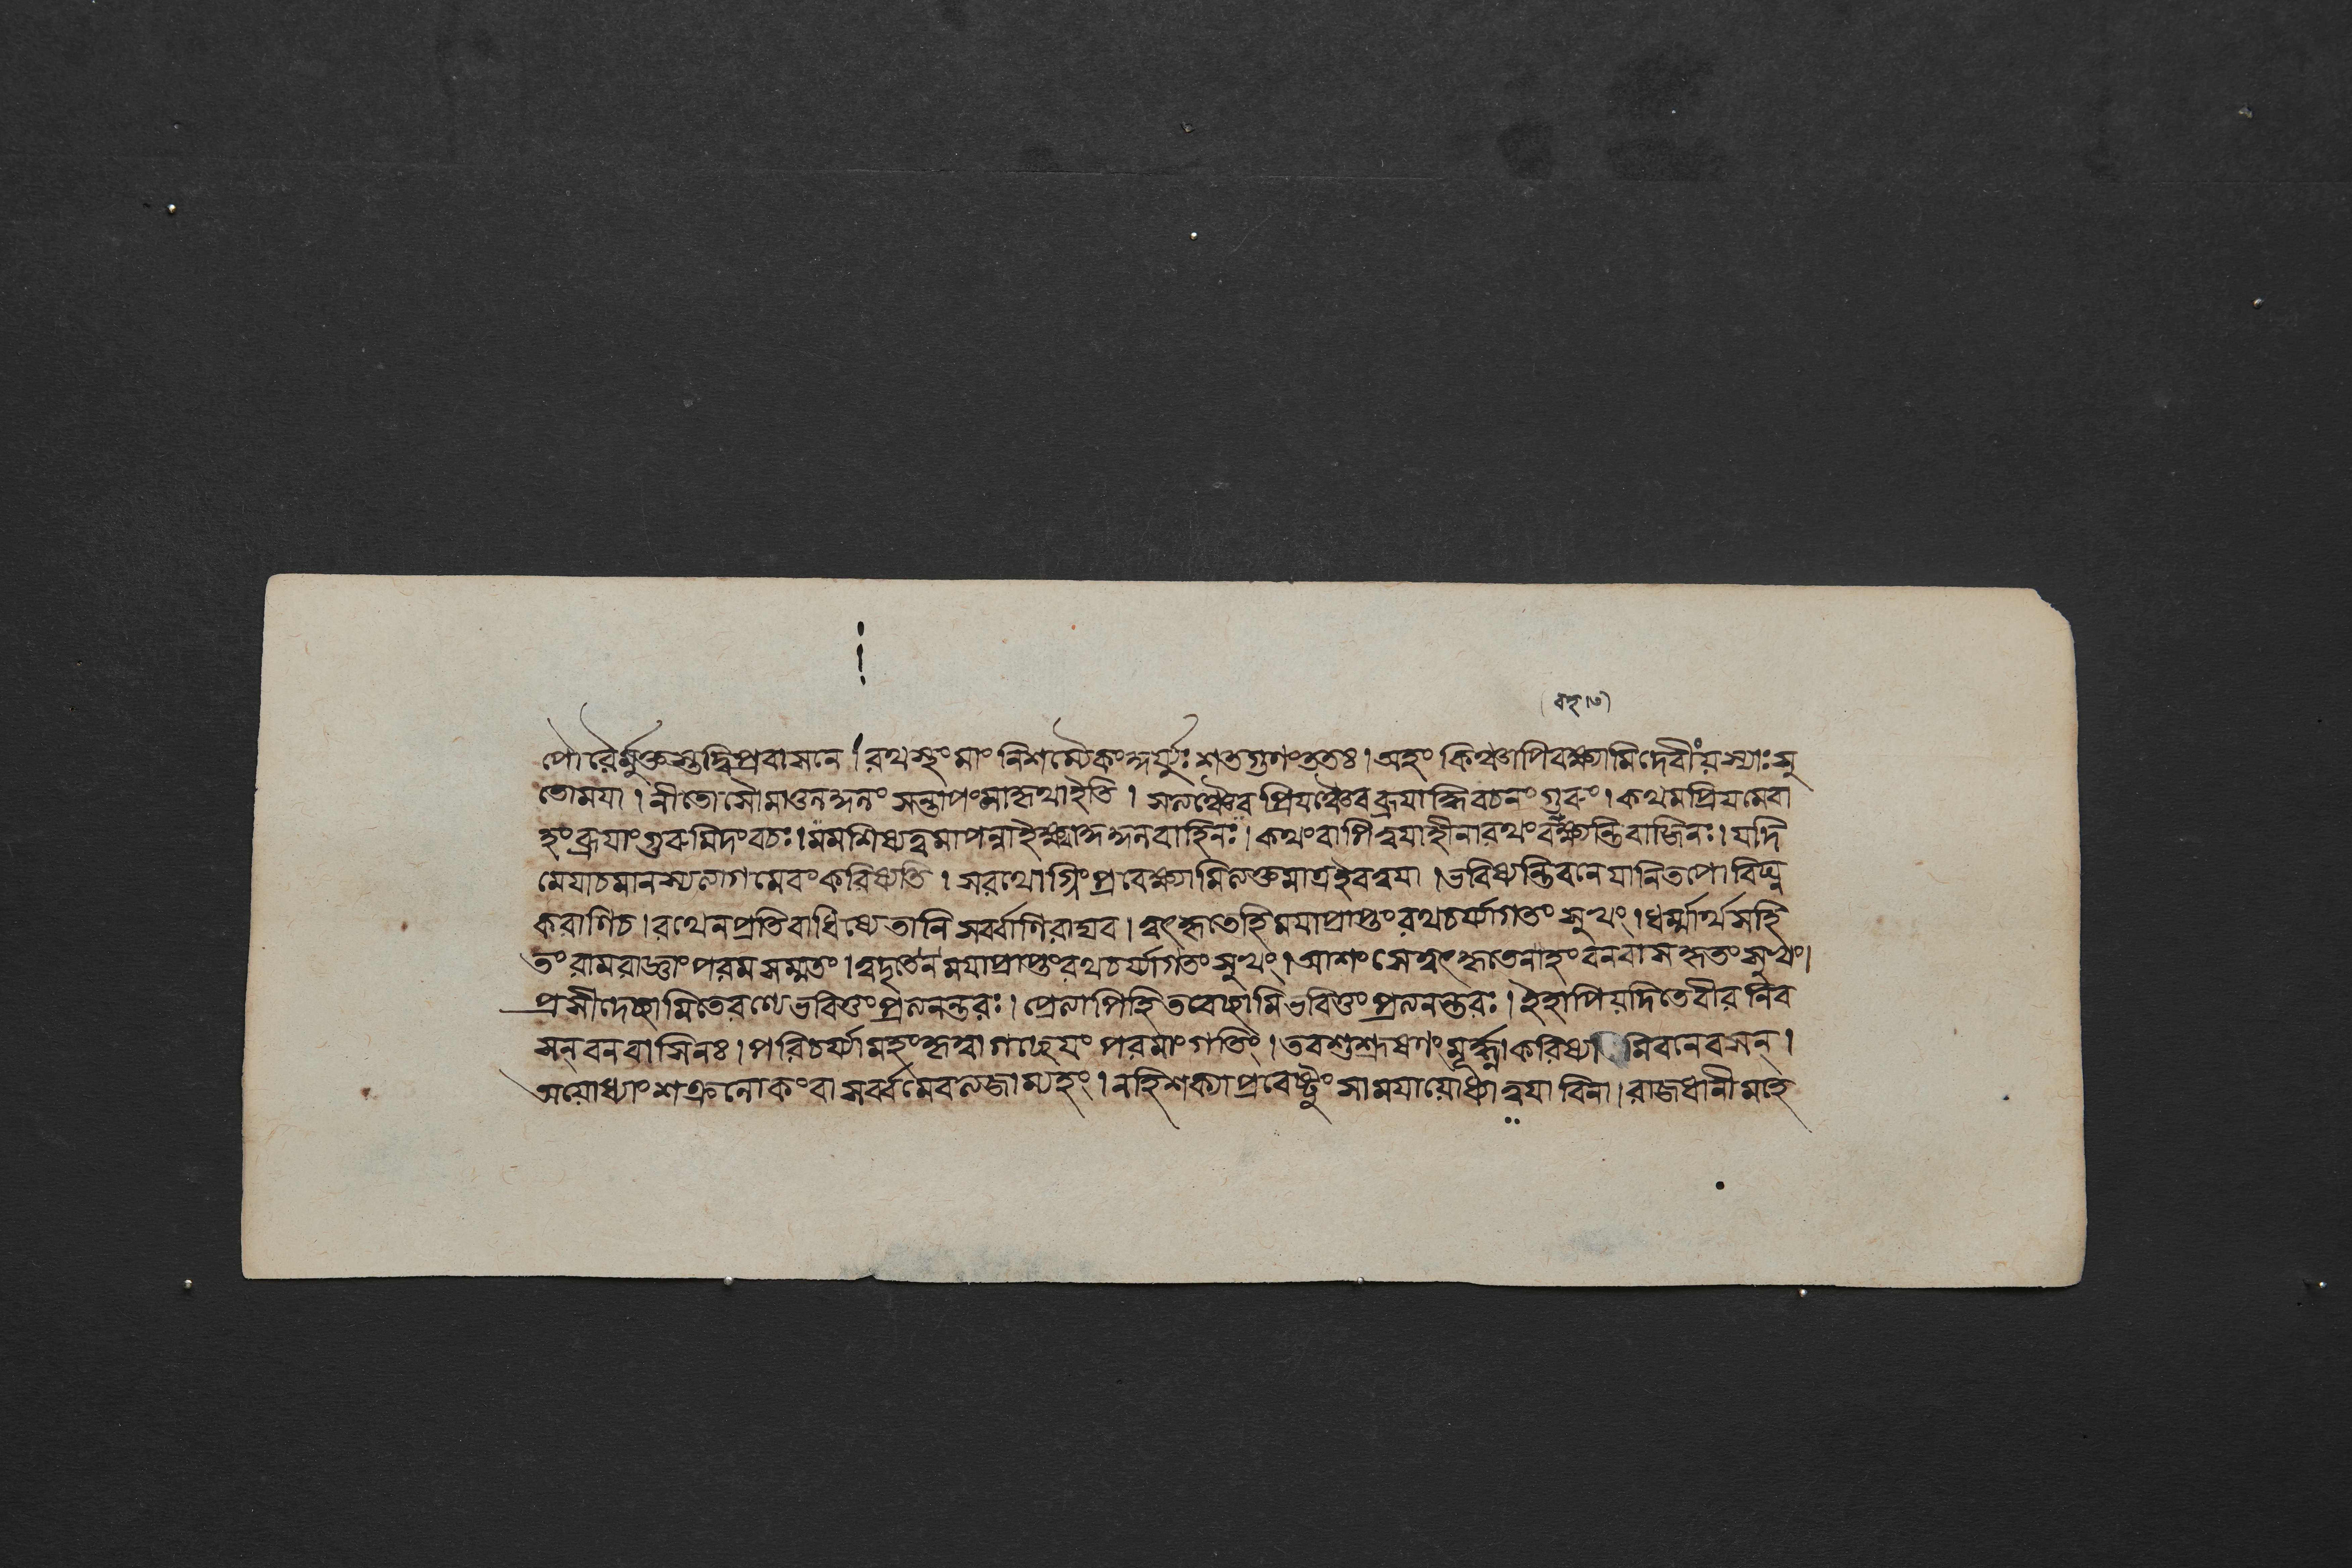 (বহ।৩)
পৌরৈর্মুক্তস্তদ্বিপ্রবাসনে। রথস্থং মাং নিশম্যৈকং কুর্য্যুঃ শতগুণং ততঃ। অহং কিঞ্চাপি বক্ষ্যামি দেবীং য়স্যাঃ সু
তোময়া। নীতোসৌমাওলকুলং সন্তাপং মাকৃথাইতি। সলঞ্চৈব প্রিয়ঞ্চৈব ব্রূয়াদ্ধি বচনং গুরুং। কথমপ্রিয়মেবা
হং ব্রূয়াং গুরুমিদং বচঃ। মমশিষ্যত্বমাপন্না ইক্ষ্বাকুকুলবাহিনঃ। কথং বাপিত্বয়াহীনারথং বক্ষ্যন্তিবাজিনঃ। যদি
মেযাচমানস্যলাগমেবং করিষ্যতি। সরথোগ্নিং প্রবেক্ষ্যামিলক্তমাত্রইবত্বয়া। ভবিষ্যন্তিবনে যানিতপোবিঘ্ন
করাণিচ। রথেনপ্রতিবাধিষ্যেতানি সর্ব্বাণিরাঘব। ত্বৎকৃতেহিময়াপ্রাপ্তং রথচর্য্যাগতং সুখং। ধর্ম্মার্থসহি
তং রামরাজ্ঞাং পরমসম্মতং। ত্বদৃতেন ময়াপ্রাপ্তং রথচর্য্যাগতং সুখং। আশংসেত্বৎকৃতেনাহং বনবাসকৃতং সুখং।
প্রসীদেচ্ছামিতেরণ্যে ভবিতুং প্রলনন্তরঃ। প্রেলাপিহিতবেচ্ছামি ভবিতুং প্রলনন্তরঃ। ইহাপিয়দিতেবীর নিব
সন্ বনবাসিনঃ। পরিচর্য্যামহং কৃত্বাগচ্ছেয়ং পরমাং গতিং। তবশুশ্রূষণং মূর্দ্ধ্নাকরিষ্যামিবনেবসন্।
অয়োধ্যাং শক্রলোকং বা সর্ব্বমেবলজাম্যহং। নহিশক্যাপ্রবেষ্টুং সাময়ায়োধ্যাত্বয়া বিনা। রাজধানীমহে